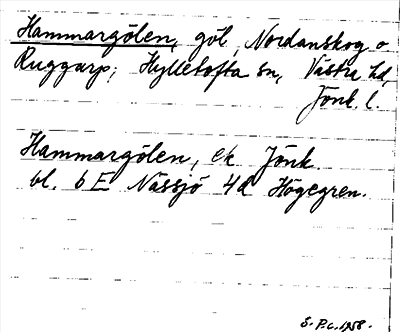 Hammargölen, göl, Nordanskog o
Ruggarp; Hylletofta sn, Västra hd,
Jönk. l.
Hammargölen, ek Jönk.
bl. 6 E Nässjö 4d Högegren.
S. P.c. 1958.